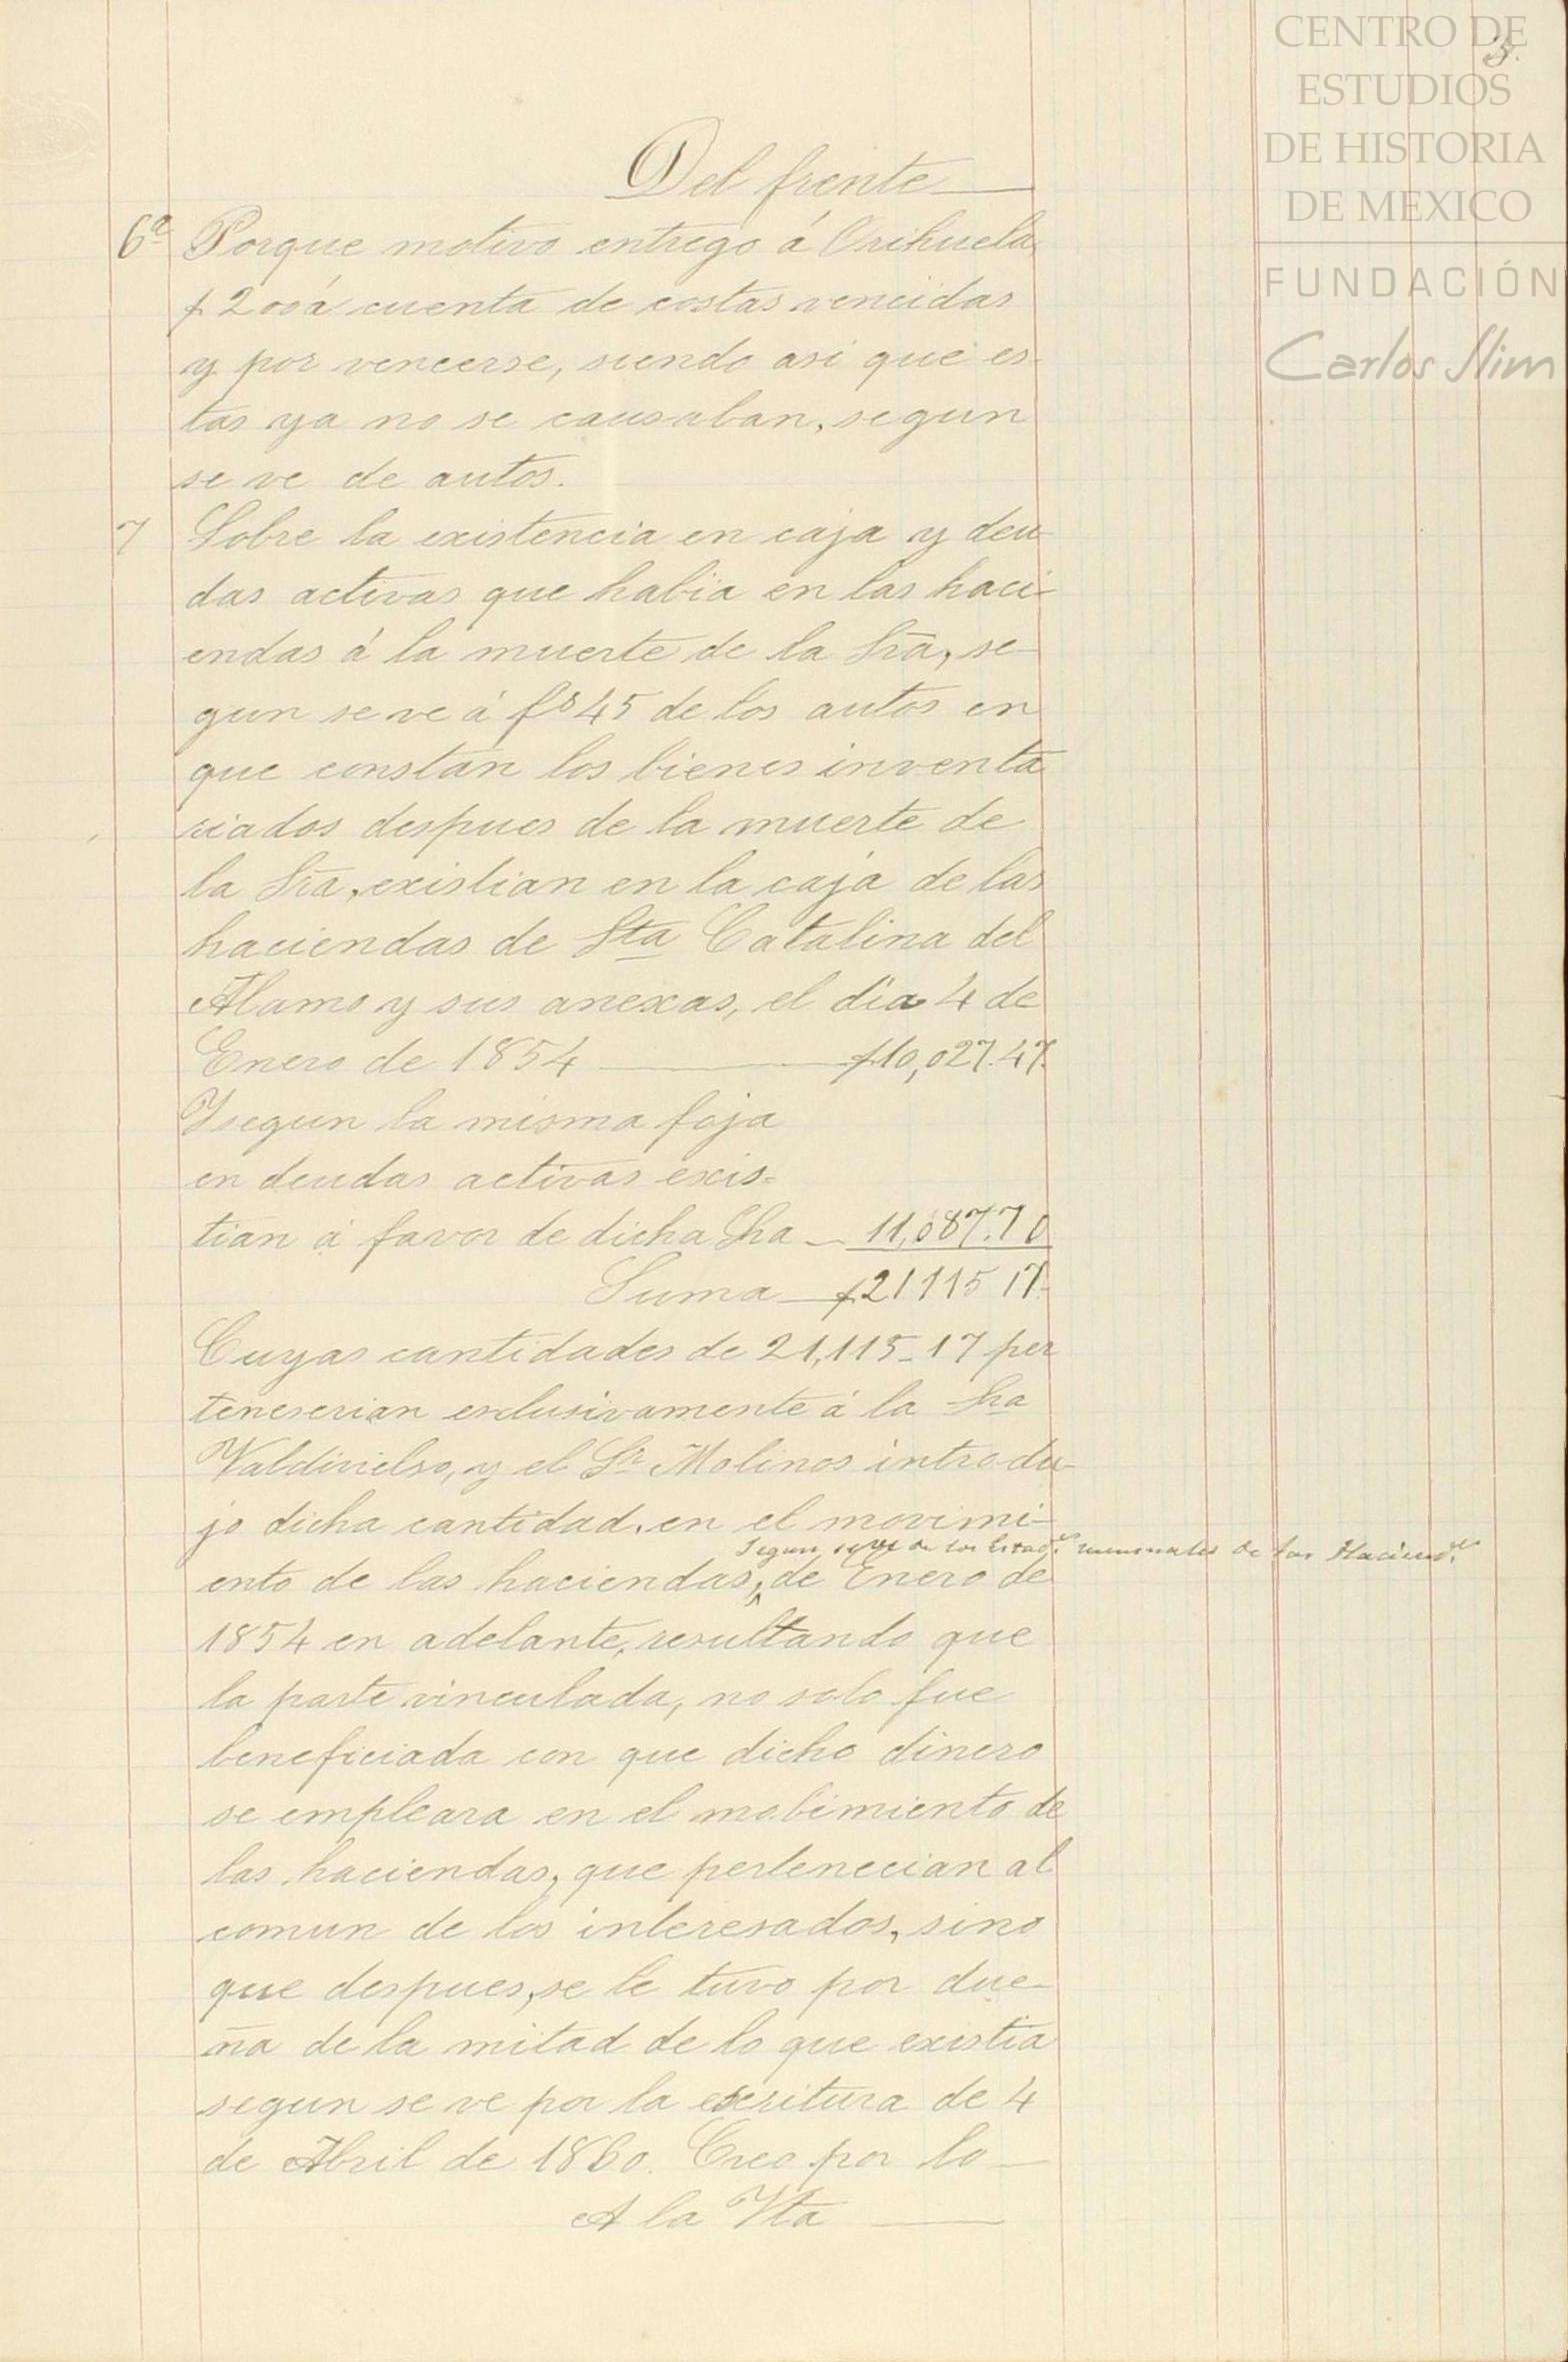 CENTRO DE
ESTUDIOS
DE HISTORIA
DE MEXICO
FUNDACIÓN
Carlos Slim
3.
Del frente
6ª Porque motivo entrego á Orihuela,
$200 á cuenta de costas vencidas
y por vencerse, siendo asi que es-
tas ya no se causaban, segun
se ve de autos.
7 Sobre la existencia en caja y deu-
das activas que habia en las haci-
endas á la muerte de la Sra, se-
gun se ve á fs 45 de los autos en
que constan los bienes inventa
riados despues de la muerte de
la Sra, existian en la caja de las
haciendas de Sta Catalina del
Alamo y sus anexas, el dia 4 de
Enero de 1854 $10,027.47.
Y segun la misma foja
en deudas activas exis=
tian á favor de dicha Sra 11,087.70
Suma $21115 17.
Cuyas cantidades de 21,115-17 per
teneserian esclusivamente á la Sra
Valdivielso, y el Sr Molinos introdu-
jo dicha cantidad, en el movimi-
segun se ve de los Estads mensuales de las Haciendas
ento de las haciendas, de Enero de
1854 en adelante, resultando que
la parte vinculada, no solo fue
beneficiada con que dicho dinero
se empleara en el mobimiento de
las haciendas, que pertenecian al
comun de los interesados, sino
que despues, se le tuvo por due-
ña de la mitad de lo que existia
segun se ve por la escritura de 4
de Abril de 1860. Creo por lo
A la Vta